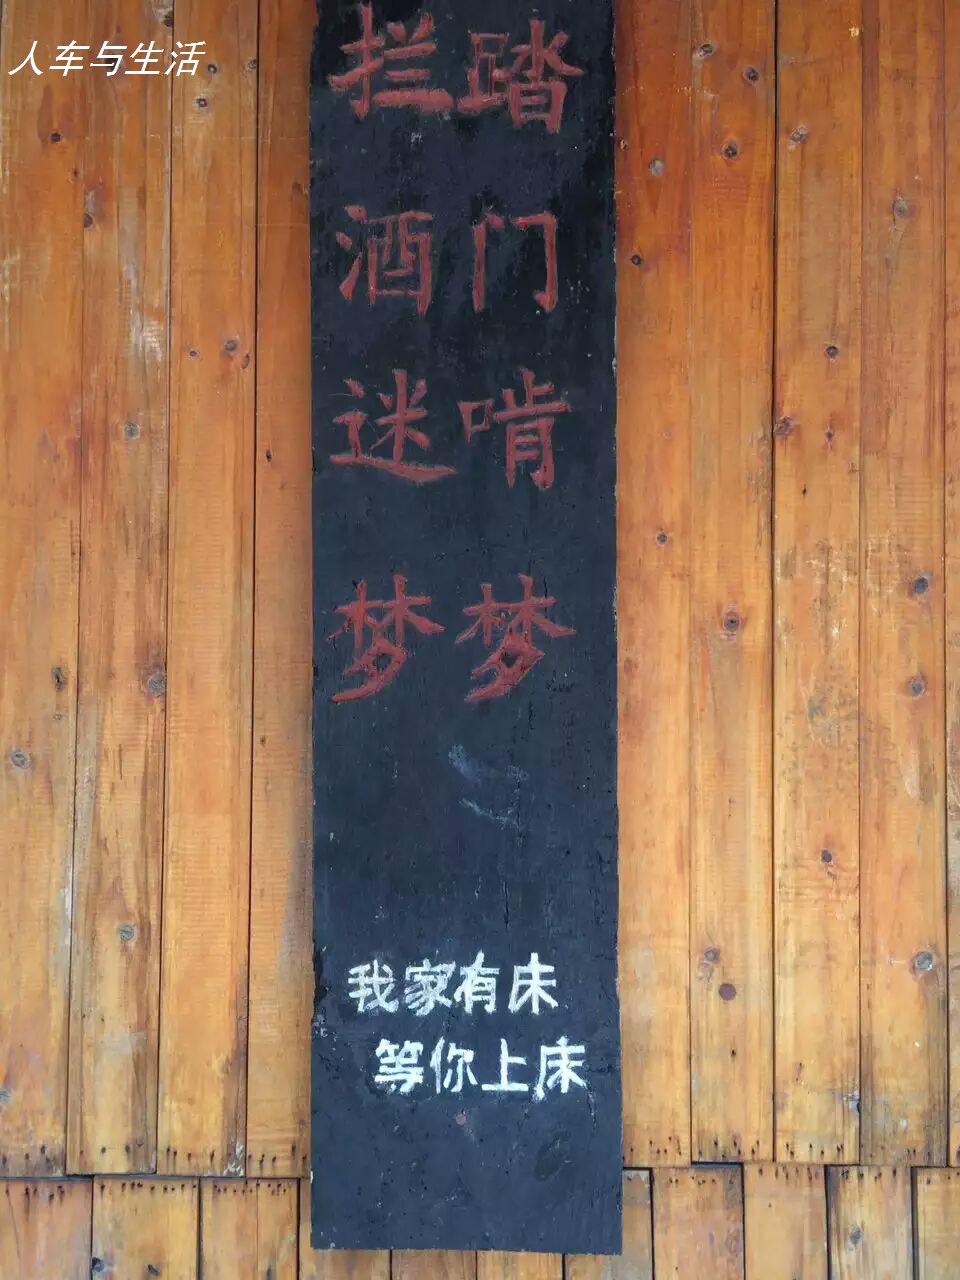 人车与生活
踏门啃梦
拦酒迷梦
我家有床
等你上床